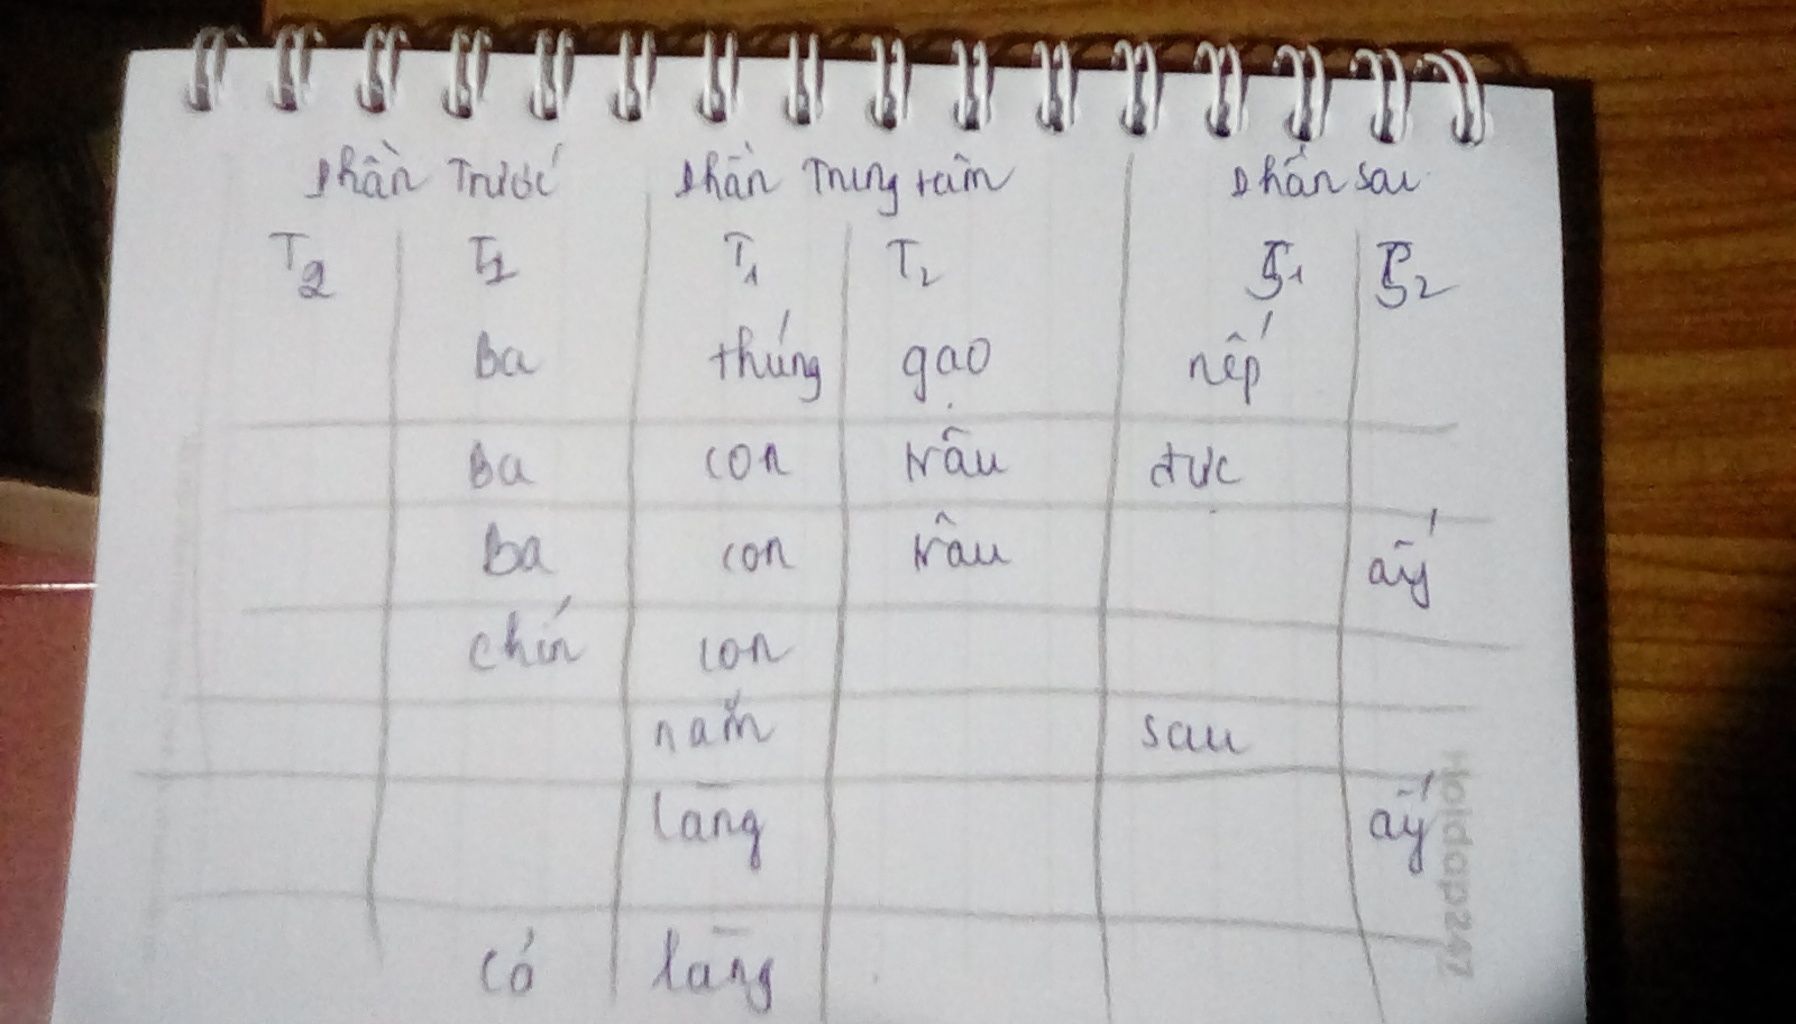 Phần Trước Phần Trung tâm Phần sau
T2 T1 T1 T2 S1 S2
Ba thúng gạo nếp
Ba con trâu đực
Ba con trâu ấy
chín con
năm sau
làng ấy
cả làng
Hoidap247